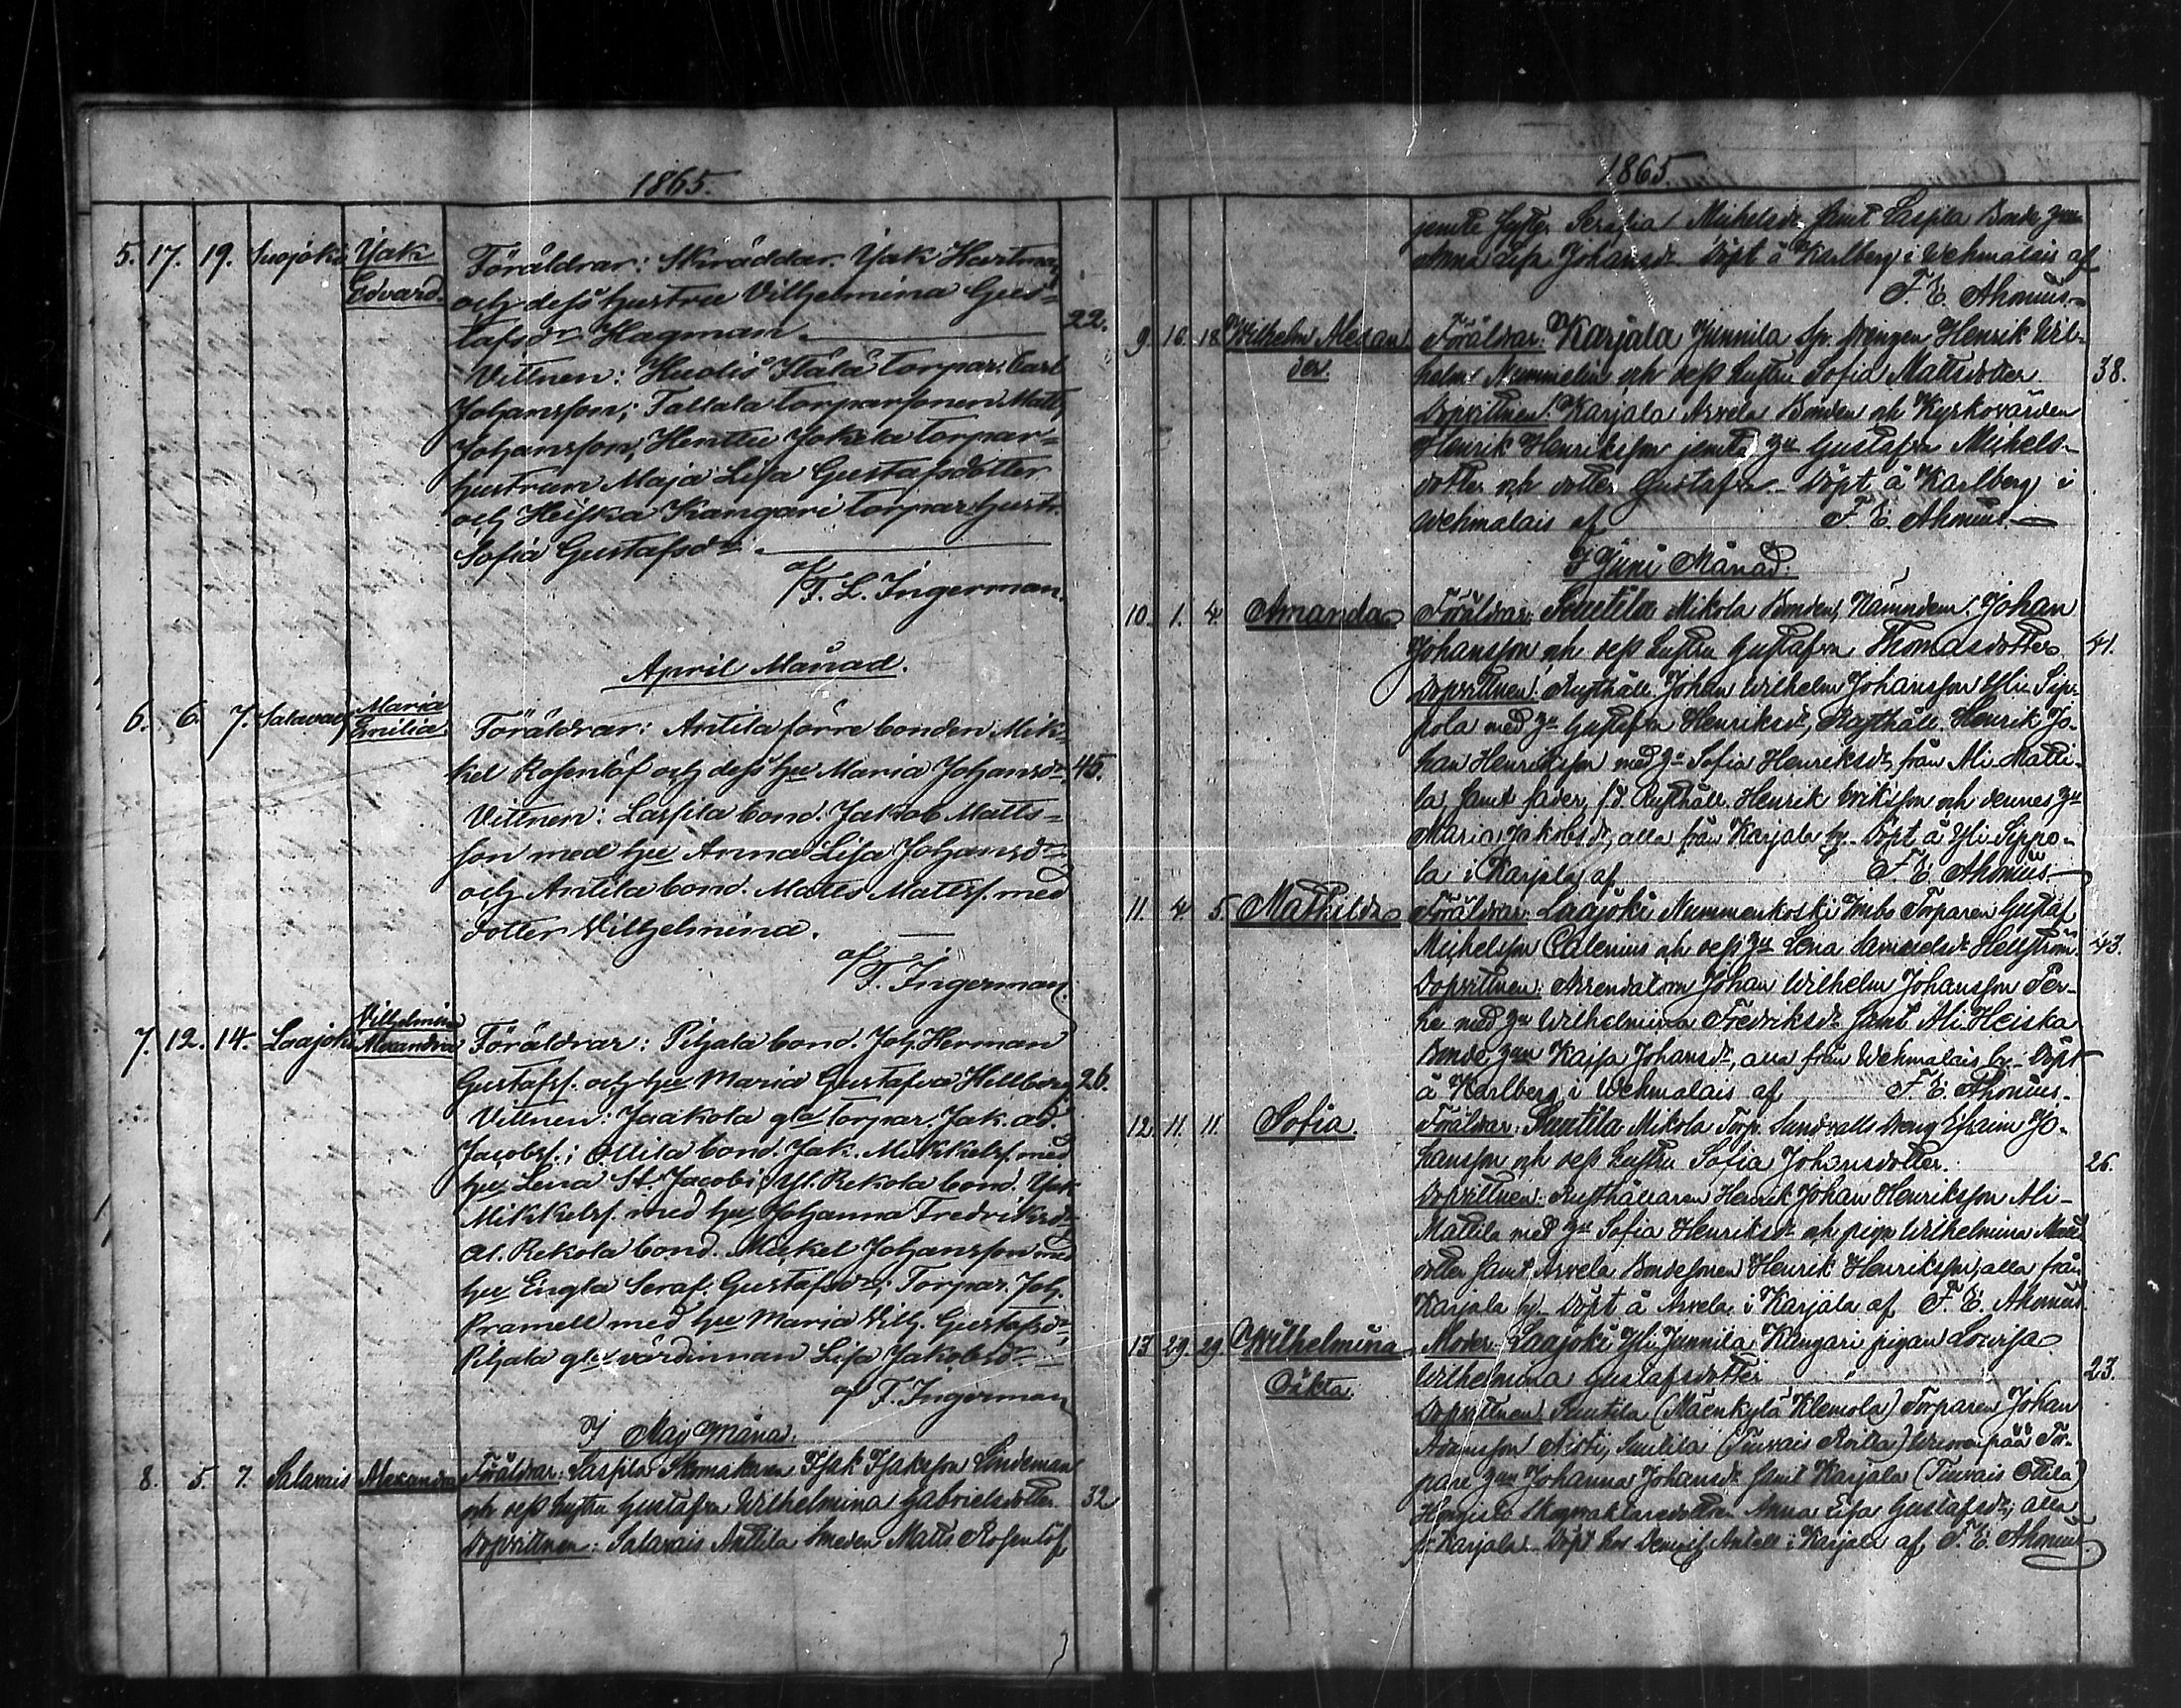 1865.
5. 17. 19. Suojoki Isak Föräldrar: Skräddar. Isak Hartman
Edvard. och dess hustru Vilhelmina Gus=
tafsdr Hagman. 22.
Vittnen: Huolis Ylälä torpar. Carl
Johansson; Tallala torparsonen Matts
Johansson, Henttu Jokela torpar=
hustrun Maja Lisa Gustafsdotter
och Heiska Kangari torpar hustr.
Sofia Gustafsdr.
af F. L. Ingerman.
April Månad.
6. 6. 7. Salavais Maria
Emilia. Föräldrar: Antila förre bonden Mik=
kel Rosenlöf och dess hu Maria Johansdr 45.
Vittnen: Laspila bond. Jakob Matts=
son med hu Anna Lisa Johansdr
och Antila bond. Matts Mattss. med
dotter Vilhelmina.
af F. Ingerman.
7. 12. 14. Laajoki Vilhelmina
Alexandra Föräldrar: Pihala bond. Joh. Herman
Gustafss. och hu Maria Gustafva Hellberg. 26.
Vittnen: Jaakola gla torpar. Jak. Ad.
Jacobss.; Ollila bond. Jak. Mikkelss. med
hu Lena St. Jacobi; Yl. Rekola bond. Isak
Mikkelss. med hu Johanna Fredriksdr
Al. Rekola bond. Mickel Johansson med
hu Engla Seraf. Gustafsdr; Torpar. Joh.
Pramell med hu Maria Vilh. Gustafsdr,
Pihala gla värdinnan Lisa Jakobsdr
af F. Ingerman
I Maj Månad.
8. 5. 7. Salavais Alexandra Föräldrar: Laspila Skomakaren Isak Isaksson Lindeman
och dess hustru Gustafva Wilhelmina Gabrielsdotter 32
Dopvittnen: Salavais Anttila Smeden Matts Rosenlöf
1865
jemte Serafia Michelsdr samt Laspila Bonde
Anna Lisa Johansdr Döpt å Karlberg i Wehmalais af
F. E. Ahonius
9. 16. 18 Wilhelm Alexan Föräldrar: Karjala Junnila Sp. Drengen Henrik Wil-
der. helm Nummelin och dess hustru Sofia Mattsdotter 38.
Dopvittnen: Karjala Arvela Bonden och Kyrkovärden
Henrik Henriksson jemte hu Gustafva Michels-
dotter och dotter Gustafva. Döpt å Karlberg i
Wehmalais af F. E. Ahonius
I Juni Månad.
10. 1. 4. Amanda Föräldrar: Suutila Mikola Bonden, Nämndem. Johan
Johansson och dess hustru Gustafva Thomasdotter 41.
Dopvittnen: Rusthåll. Johan Wilhelm Johansson Yli Sip-
pola med hu Gustafva Henriksdr, Rusthåll. Henrik Jo-
han Henriksson med hu Sofia Henriksdr, från Ali Matti-
la, samt fader, f.d. Rusthåll. Henrik Eriksson och dennes hu
Maria Jakobsdr, alla från Karjala by. Döpt å Yli-Sippo-
la i Karjala af F. E. Ahonius
11. 4. 5. Mathilda Föräldrar: Laajoki Nummenkoski Torparen Gustaf
Michelsson Calenius och dess hu Lena Samuelsdr Hellström. 43.
Dopvittnen: Arrendatorn Johan Wilhelm Johansson Per-
he med hu Wilhelmina Fredriksdr samt Ali Heiska
Bonde hun Kajsa Johansdr, alla från Wehmalais by. Döpt
å Karlberg i Wehmalais af F. E. Ahonius.
12. 11. 11. Sofia. Föräldrar: Suutila Mikola Torp. Sundvalls Dreng Efraim Jo-
hansson och dess hustru Sofia Johansdotter. 26.
Dopvittnen: Rusthållaren Henrik Johan Henriksson Ali-
Mattila med hu Sofia Henriksdr och pigan Wilhelmina
dotter samt Arvela Bondesonen Henrik Henriksson, alla från
Karjala by. Döpt å Arvela i Karjala af F. E. Ahonius.
13 29. 29 Wilhelmina Moder: Laajoki Yli Junnila Kangari pigan Lovisa
Oäkta. Wilhelmina Gustafsdotter 23.
Dopvittnen: Suutila (Mäenkylä Klemola) Torparen Johan
Adamsson Nisti, Suutila (Tuurais Roitta) Tor-
pare hun Johanna Johansdr samt Karjala (Tuurais Ottila)
Hongisto Skogvaktaredottren Anna Lisa Gustafsdr; alla
fr Karjala. Döpt hos Antell i Karjala af F. E. Ahonius